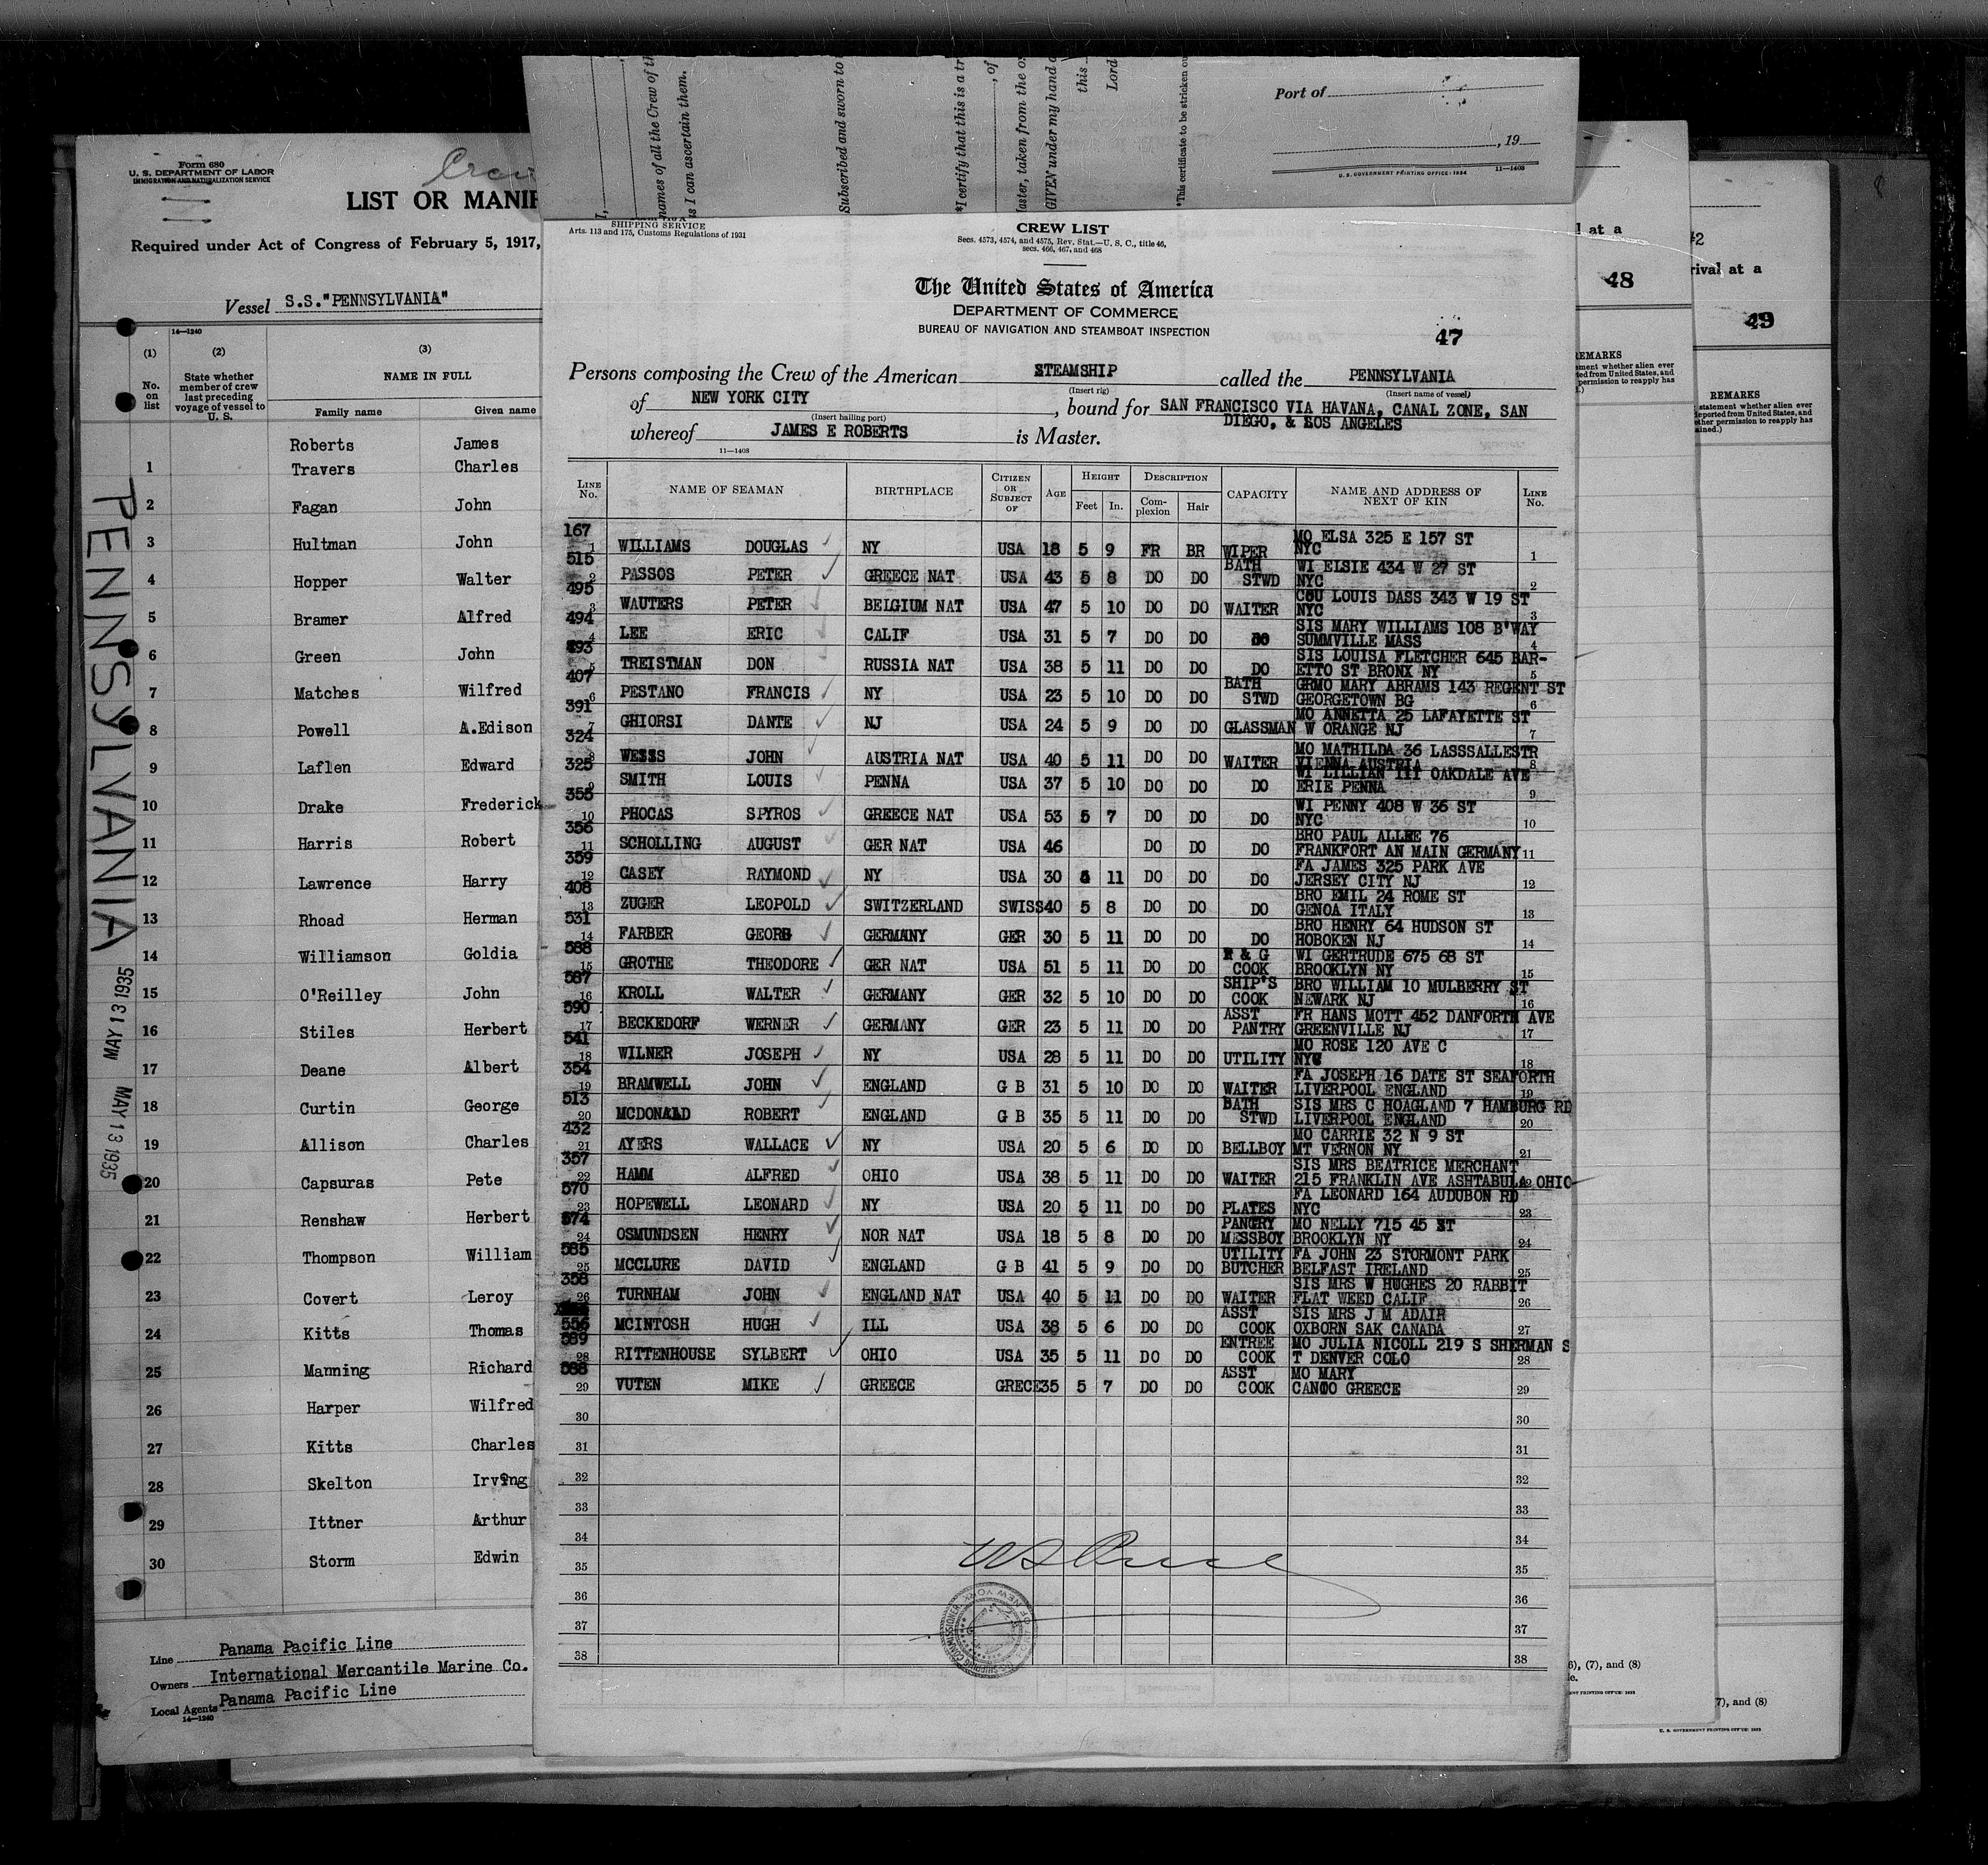 Form 680
U. S. DEPARTMENT OF LABOR
IMMIGRATION AND NATURALIZATION SERVICE
Crew
LIST OR MANIF
Required under Act of Congress of February 5, 1917,
Vessel S.S."PENNSYLVANIA"
14—1240
(1) (2) (3)
No. on list
State whether member of crew last preceding voyage of vessel to U. S.
NAME IN FULL
Family name Given name
Roberts James
1 Travers Charles
2 Fagan John
3 Hultman John
4 Hopper Walter
5 Bramer Alfred
6 Green John
7 Matches Wilfred
8 Powell A.Edison
9 Laflen Edward
10 Drake Frederick
11 Harris Robert
12 Lawrence Harry
13 Rhoad Herman
14 Williamson Goldia
15 O'Reilley John
16 Stiles Herbert
17 Deane Albert
18 Curtin George
19 Allison Charles
20 Capsuras Pete
21 Renshaw Herbert
22 Thompson William
23 Covert Leroy
24 Kitts Thomas
25 Manning Richard
26 Harper Wilfred
27 Kitts Charles
28 Skelton Irving
29 Ittner Arthur
30 Storm Edwin
Line Panama Pacific Line
Owners International Mercantile Marine Co.
Local Agents Panama Pacific Line
14—1240
PENNSYLVANIA
MAY 13 1935
MAY 13 1935
I,
names of all the Crew of th
as I can ascertain them.
Subscribed and sworn to
*I certify that this is a tr
, of
aster, taken from the o
GIVEN under my hand
this
Lord
*This certificate to be stricken ou
Port of
, 19
U. S. GOVERNMENT PRINTING OFFICE: 1934 11—1408
SHIPPING SERVICE
Arts. 113 and 175, Customs Regulations of 1931
CREW LIST
Secs. 4573, 4574, and 4575, Rev. Stat.—U. S. C., title 46,
secs. 466, 467, and 468
The United States of America
DEPARTMENT OF COMMERCE
BUREAU OF NAVIGATION AND STEAMBOAT INSPECTION
47
Persons composing the Crew of the American STEAMSHIP called the PENNSYLVANIA
(Insert rig) (Insert name of vessel)
of NEW YORK CITY, bound for SAN FRANCISCO VIA HAVANA, CANAL ZONE, SAN
(Insert hailing port) DIEGO, & LOS ANGELES
whereof JAMES E ROBERTS is Master.
11—1408
LINE No. NAME OF SEAMAN BIRTHPLACE CITIZEN OR SUBJECT OF AGE HEIGHT DESCRIPTION CAPACITY NAME AND ADDRESS OF NEXT OF KIN LINE No.
Feet In. Complexion Hair
167 MO ELSA 325 E 157 ST
1 WILLIAMS DOUGLAS NY USA 18 5 9 FR BR WIPER NYC 1
515 BATH WI ELSIE 434 W 27 ST
2 PASSOS PETER GREECE NAT USA 43 5 8 DO DO STWD NYC 2
495 COU LOUIS DASS 343 W 19 ST
3 WAUTERS PETER BELGIUM NAT USA 47 5 10 DO DO WAITER NYC 3
494 SIS MARY WILLIAMS 108 B'WAY
4 LEE ERIC CALIF USA 31 5 7 DO DO DO SUMMVILLE MASS 4
493 SIS LOUISA FLETCHER 645 BAR-
5 TREISTMAN DON RUSSIA NAT USA 38 5 11 DO DO DO ETTO ST BRONX NY 5
407 BATH GRMO MARY ABRAMS 143 REGENT ST
6 PESTANO FRANCIS NY USA 23 5 10 DO DO STWD GEORGETOWN BG 6
391 MO ANNETTA 25 LAFAYETTE ST
7 GHIORSI DANTE NJ USA 24 5 9 DO DO GLASSMAN W ORANGE NJ 7
324 MO MATHILDA 36 LASSSALLESTR
8 WESSS JOHN AUSTRIA NAT USA 40 5 11 DO DO WAITER VIENNA AUSTRIA 8
325 WI LILLIAN 111 OAKDALE AVE
9 SMITH LOUIS PENNA USA 37 5 10 DO DO DO ERIE PENNA 9
355 WI PENNY 408 W 36 ST
10 PHOCAS SPYROS GREECE NAT USA 53 5 7 DO DO DO NYC 10
356 BRO PAUL ALLEE 76
11 SCHOLLING AUGUST GER NAT USA 46 DO DO DO FRANKFORT AN MAIN GERMANY 11
359 FA JAMES 325 PARK AVE
12 CASEY RAYMOND NY USA 30 11 DO DO DO JERSEY CITY NJ 12
408 BRO EMIL 24 ROME ST
13 ZUGER LEOPOLD SWITZERLAND SWISS 40 5 8 DO DO DO GENOA ITALY 13
531 BRO HENRY 64 HUDSON ST
14 FARBER GEORG GERMANY GER 30 5 11 DO DO DO HOBOKEN NJ 14
588 & G WI GERTRUDE 675 68 ST
15 GROTHE THEODORE GER NAT USA 51 5 11 DO DO COOK BROOKLYN NY 15
587 SHIP'S BRO WILLIAM 10 MULBERRY ST
16 KROLL WALTER GERMANY GER 32 5 10 DO DO COOK NEWARK NJ 16
590 ASST FR HANS MOTT 452 DANFORTH AVE
17 BECKEDORF WERNER GERMANY GER 23 5 11 DO DO PANTRY GREENVILLE NJ 17
541 MO ROSE 120 AVE C
18 WILNER JOSEPH NY USA 28 5 11 DO DO UTILITY NYC 18
354 FA JOSEPH 16 DATE ST SEAFORTH
19 BRAMWELL JOHN ENGLAND G B 31 5 10 DO DO WAITER LIVERPOOL ENGLAND 19
513 BATH SIS MRS C HOAGLAND 7 HAMBURG RD
20 MCDONALD ROBERT ENGLAND G B 35 5 11 DO DO STWD LIVERPOOL ENGLAND 20
432 MO CARRIE 32 N 9 ST
21 AYERS WALLACE NY USA 20 5 6 DO DO BELLBOY MT VERNON NY 21
357 SIS MRS BEATRICE MERCHANT
22 HAMM ALFRED OHIO USA 38 5 11 DO DO WAITER 215 FRANKLIN AVE ASHTABULA OHIO 22
570 FA LEONARD 164 AUDUBON RD
23 HOPEWELL LEONARD NY USA 20 5 11 DO DO PLATES NYC 23
574 PANTRY MO NELLY 715 45 ST
24 OSMUNDSEN HENRY NOR NAT USA 18 5 8 DO DO MESSBOY BROOKLYN NY 24
585 UTILITY FA JOHN 23 STORMONT PARK
25 MCCLURE DAVID ENGLAND G B 41 5 9 DO DO BUTCHER BELFAST IRELAND 25
358 SIS MRS W HUGHES 20 RABBIT
26 TURNHAM JOHN ENGLAND NAT USA 40 5 11 DO DO WAITER FLAT WEED CALIF 26
ASST SIS MRS J M ADAIR
556 MCINTOSH HUGH ILL USA 38 5 6 DO DO COOK OXBORN SAK CANADA 27
589 ENTREE MO JULIA NICOLL 219 S SHERMAN S
28 RITTENHOUSE SYLBERT OHIO USA 35 5 11 DO DO COOK T DENVER COLO 28
ASST MO MARY
29 VUTEN MIKE GREECE GRECE 35 5 7 DO DO COOK GREECE 29
30 30
31 31
32 32
33 33
34 34
35 35
36 36
37 37
38 38
U.S. SHIPPING COMMISSIONER
NEW YORK
l at a
48
REMARKS
ement whether alien ever
ted from United States, and
permission to reapply has
6), (7), and (8)
#2
rival at a
49
REMARKS
statement whether alien ever
deported from United States, and
other permission to reapply has
ained.)
7), and (8)
U. S. GOVERNMENT PRINTING OFFICE: 1933
8